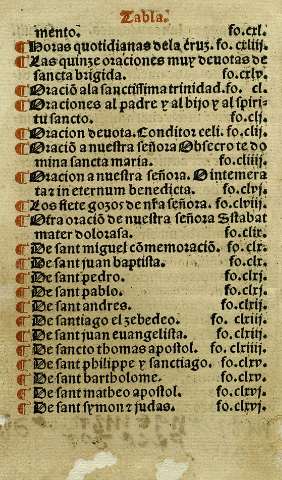 Tabla.
mento. fo.cxl.
¶ Horas quotidianas dela cruz. fo. cxliij.
¶ Las quinze oraciones muy deuotas de
sancta brigida. fo.cxlv.
¶ Oraciõ ala sanctissima trinidad. fo. cl.
¶ Oraciones al padre y al hijo y al spiri-
tu sancto. fo.clj.
¶ Oracion deuota. Conditor celi. fo.clij.
¶ Oraciõ a nuestra señora Obsecro te do
mina sancta maria. fo.cliiij.
¶ Oracion a nuestra señora. O intemera
ta r in eternum benedicta. fo.clvj.
¶ Los siete gozos de nr̃a señora. fo.clviij.
¶ Otra oraciõ de nuestra señora Stabat
mater dolorasa. fo.clix.
¶ De sant miguel cõmemoraciõ. fo.clx.
¶ De sant juan baptista. fo.clx.
¶ De sant pedro. fo.clxj.
¶ De sant pablo. fo.clxj.
¶ De sant andres. fo.clxij.
¶ De santiago el zebedeo. fo. clxiij.
¶ De sant juan euangelista. fo.clxiij.
¶ De sancto thomas apostol. fo.clxiiij.
¶ De sant philippe y sanctiago. fo.clxv.
¶ De sant bartholome. fo.clxv.
¶ De sant matheo apostol. fo.clxvj.
¶ De sant symon r judas. fo.clxvj.